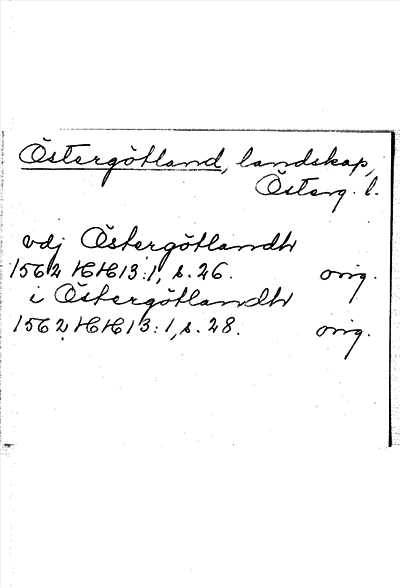 Östergötland, landskap,
Österg. l.
vdj Östergötlandh
1562 HH13:1, s. 26. orig.
i Östergötlandh
1562 HH13:1, s. 28. orig.